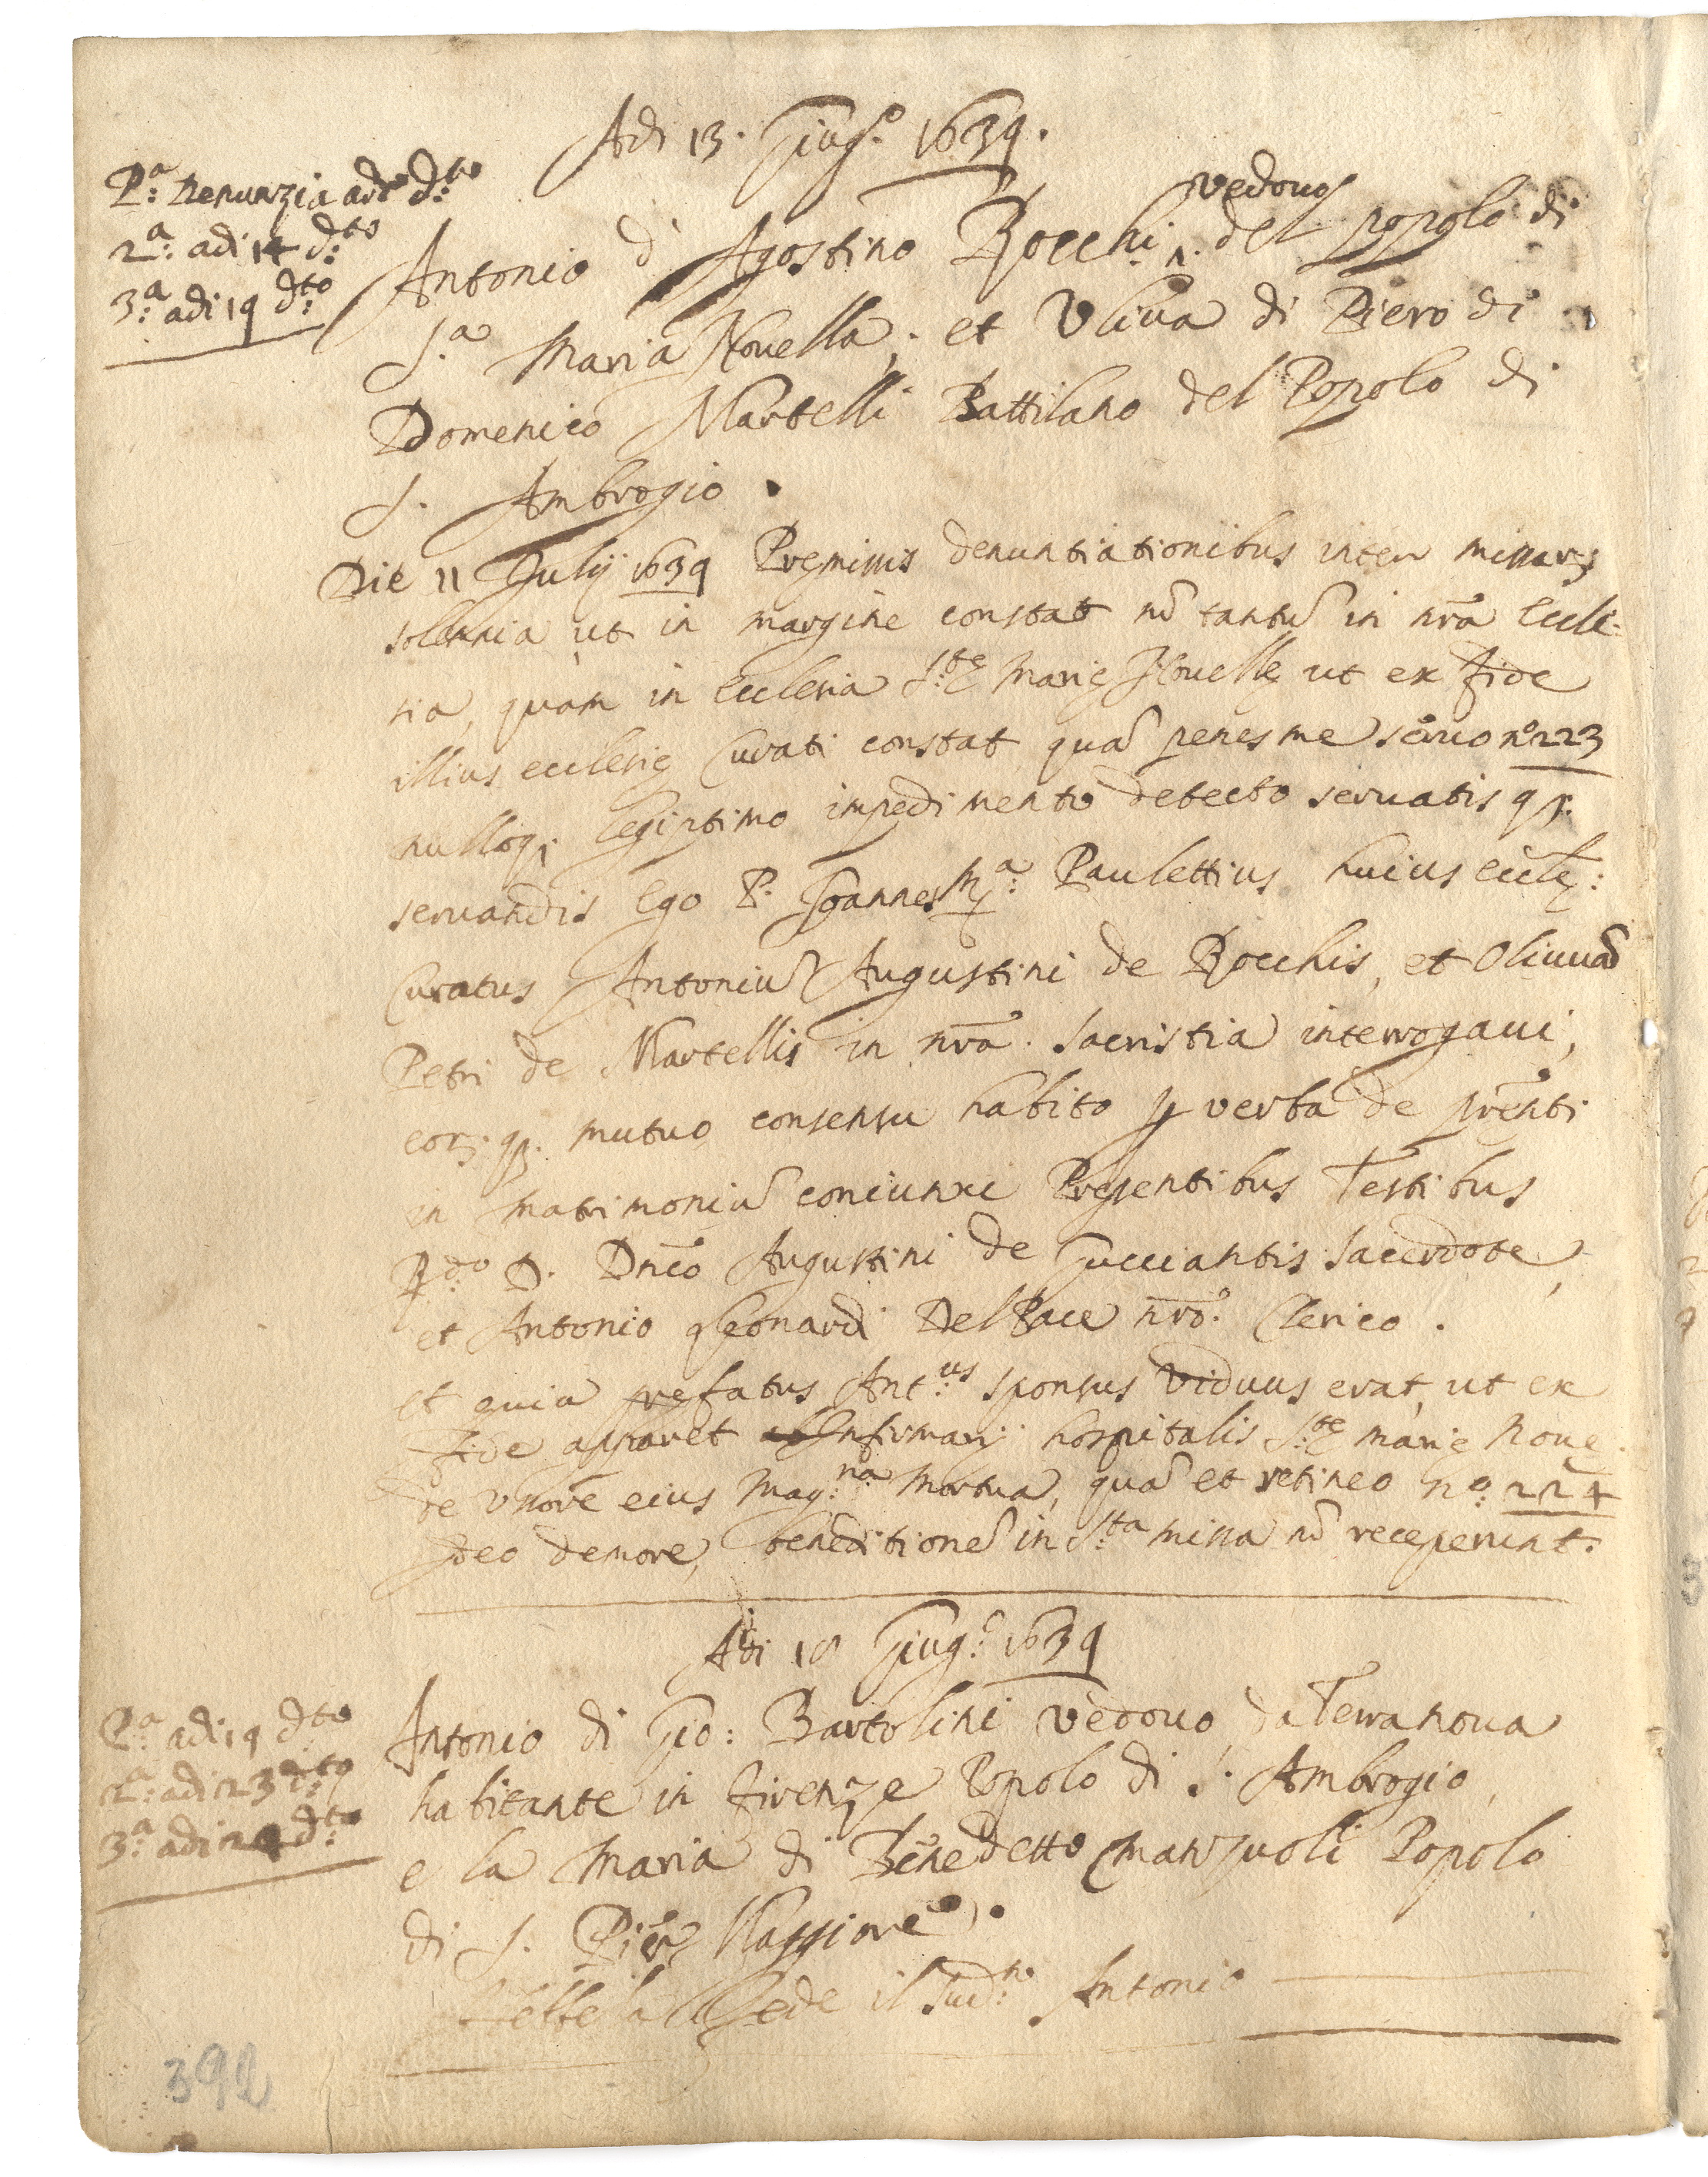 Adi 13. Giug.o 1639.
P.a Renunzia adto d.to
2.a adi 14 d.to
3.a adi 19 d.to
vedouo
Antonio d' Agostino Rocchi ^. del popolo di
S.a Maria Nouella; et Vliua di Piero di
Domenico Martelli Battilano del Popolo di
S. Ambrogio.
Die 11 Julij 1639 Premissis denuntiationibus inter missarȝ
solennia ut in margine constat nō tantū in nrā Eccle-
sia, quam in Ecclesia S.tę Marię Nouellę ut ex fide
illius ecclesię Curati constat quā penes me seruo n.o 223
nulloq; legiptimo impedimento detecto seruatis q;
seruandis Ego P. Joannes M.a Paulettius huius Eccłę:
Curatus Antoniū Augustini de Rocchis, et Oliuuā
Petri de Martellis in nrā. Sacristia interrogaui,
eorȝ. q;. mutuo consensu habito ꝑ verba de pñti
in Matrimoniū coniunxi Presentibus Testibus
R.do D. Dnīco Augustini de Gucciantis Sacerdote,
et Antonio Leonardi Del Pace nrō. Clerico.
et quia prefatus Ant.us sponsus Viduus erat, ut ex
fide apparet Infirmarij hospitalis S.tę marię Noue.
de Vxore eius Mag.na Mortua, quā et retineo n.o 224
Ideo demore, beneditionē in S.ta missa nō receperunt.
Adi 18 Giug.o 1639
P.a adi 19 d.to
2.a adi 23 d.to
3.a adi 24 d.to
Antonio di Gio: Bartolini Vedouo da Terranoua
habitante in firenze Popolo di S. Ambrogio,
e la Maria di Benedetto Manzuoli Popolo
di S. Pier Maggiore.
hebbe la fede il Sud.to Antonio
392